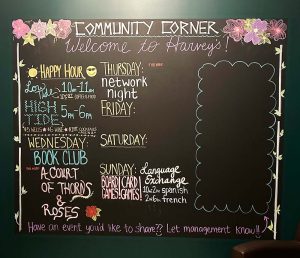 COMMUNITY CORNER
Welcome to Harvey's!
HAPPY HOUR
Low Tide 10am-11am
HIGH TIDE 5pm-6pm
WEDNESDAY:
BOOK CLUB
A COURT
OF THORNS
&
ROSES
THURSDAY:
network
night
FRIDAY:
SATURDAY:
SUNDAY:
BOARD! CARD!
GAMES! GAMES!
Language
Exchange
spanish
french
Have an event you'd like to share?? Let management know!!